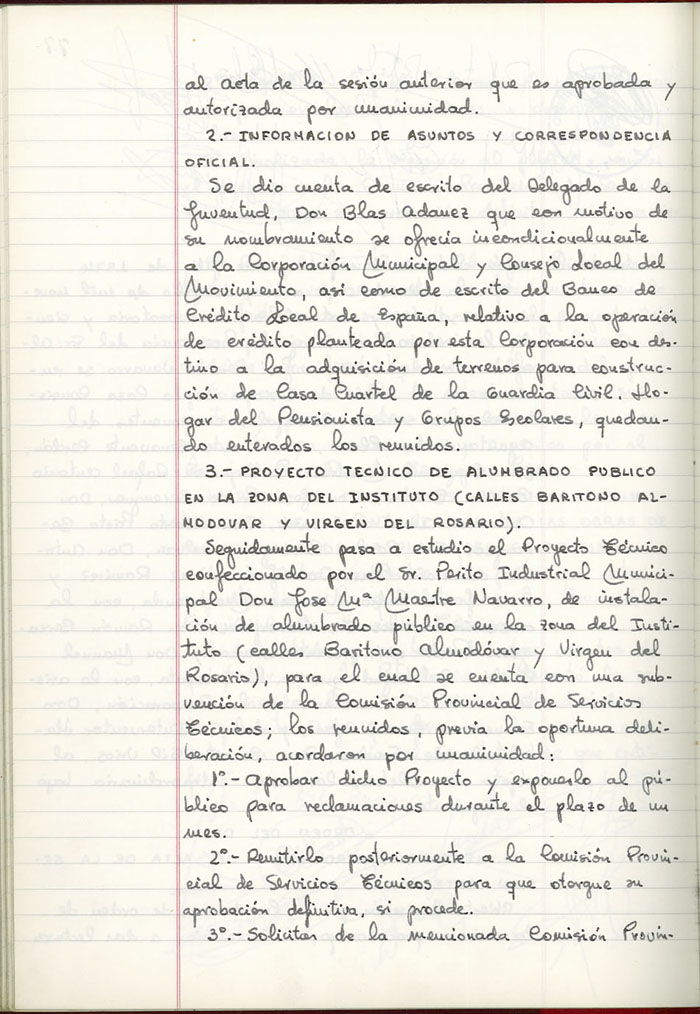 al acta de la sesión anterior que es aprobada y
autorizada por unanimidad.
2.- INFORMACION DE ASUNTOS Y CORRESPONDENCIA
OFICIAL.
Se dio cuenta de escrito del Delegado de la
Juventud, Don Blas Adanez que con motivo de
su nombramiento se ofrecía incondicionalmente
a la Corporación Municipal y Consejo Local del
Movimiento, así como de escrito del Banco de
Crédito Local de España, relativo a la operación
de crédito planteada por esta Corporación con des-
tino a la adquisición de terrenos para construc-
ción de Casa Cuartel de la Guardia Civil, Ho-
gar del Pensionista y Grupos Escolares, quedan-
do enterados los reunidos.
3.- PROYECTO TECNICO DE ALUMBRADO PUBLICO
EN LA ZONA DEL INSTITUTO (CALLES BARITONO AL-
MODOVAR Y VIRGEN DEL ROSARIO).
Seguidamente pasa a estudio el Proyecto Técnico
confeccionado por el Sr. Perito Industrial Munici-
pal Don Jose Mª Maestre Navarro, de instala-
ción de alumbrado público en la zona del Insti-
tuto (calles Baritono Almodóvar y Virgen del
Rosario), para el cual se cuenta con una sub-
vención de la Comisión Provincial de Servicios
Técnicos; los reunidos, previa la oportuna deli-
beración, acordaron por unanimidad:
1º.- Aprobar dicho Proyecto y exponerlo al pú-
blico para reclamaciones durante el plazo de un
mes.
2º.- Remitirlo posteriormente a la Comisión Provin-
cial de Servicios Técnicos para que otorgue su
aprobación definitiva, si procede.
3º.- Solicitar de la mencionada Comisión Provin-